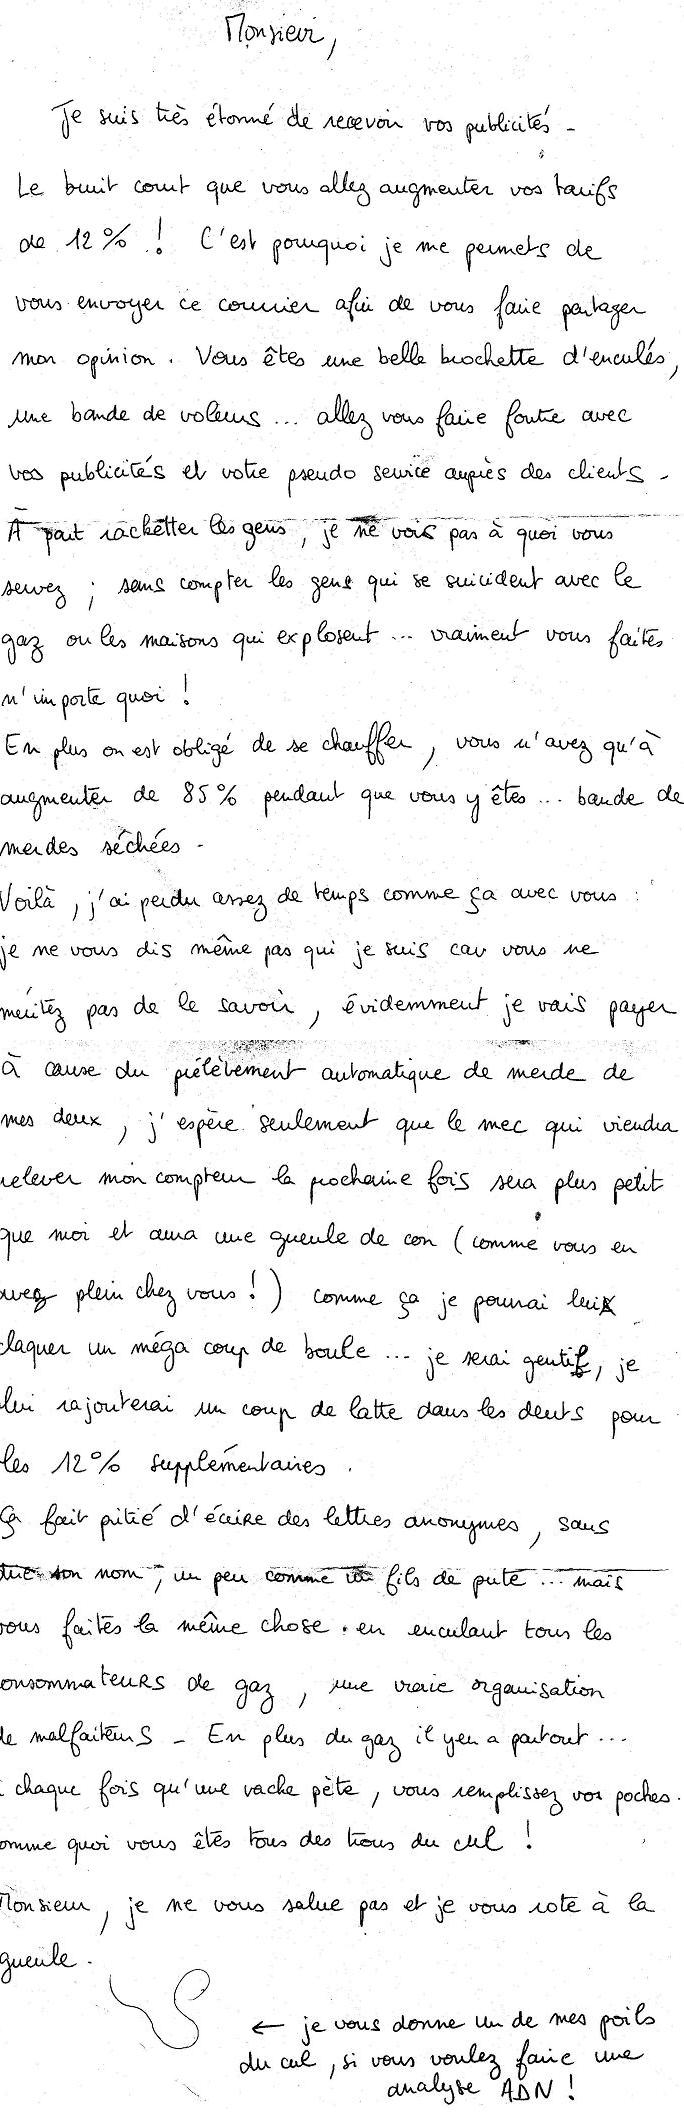 Monsieur,
Je suis très étonné de recevoir vos publicités -
Le bruit court que vous allez augmenter vos tarifs
de 12% ! C'est pourquoi je me permets de
vous envoyer ce courrier afin de vous faire partager
mon opinion. Vous êtes une belle brochette d'enculés,
une bande de voleurs ... allez vous faire foutre avec
vos publicités et votre pseudo service auprès des clients -
À part racketter les gens, je ne vois pas à quoi vous
servez ; sans compter les gens qui se suicident avec le
gaz ou les maisons qui explosent ... vraiment vous faites
n'importe quoi !
En plus on est obligé de se chauffer, vous n'avez qu'à
augmenter de 85% pendant que vous y êtes ... bande de
merdes séchées -
Voilà, j'ai perdu assez de temps comme ça avec vous :
je ne vous dis même pas qui je suis car vous ne
méritez pas de le savoir, évidemment je vais payer
à cause du prélèvement automatique de merde de
mes deux, j'espère seulement que le mec qui viendra
relever mon compteur la prochaine fois sera plus petit
que moi et aura une gueule de con (comme vous en
avez plein chez vous !) comme ça je pourrai lui
claquer un méga coup de boule ... je serai gentil, je
lui rajouterai un coup de latte dans les dents pour
les 12% supplémentaires.
Ça fait pitié d'écrire des lettres anonymes, sans
son nom, un peu comme un fils de pute ... mais
vous faites la même chose . en enculant tous les
onsommateurs de gaz, une vraie organisation
de malfaiteurs - En plus du gaz il y en a partout ...
chaque fois qu'une vache pète, vous remplissez vos poches.
omme quoi vous êtes tous des trous du cul !
Monsieur, je ne vous salue pas et je vous rote à la
gueule.
← je vous donne un de mes poils
du cul, si vous voulez faire une
analyse ADN !